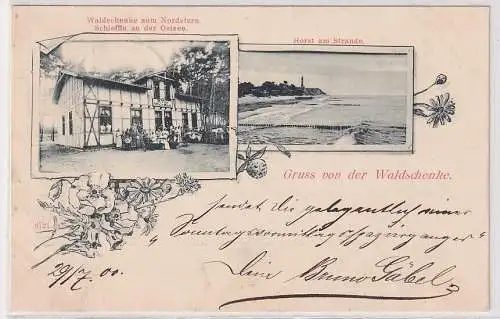 Waldschenke zum Nordstern.
Schleffin an der Ostsee.
Horst am Strande.
Gruss von der Waldschenke.
sendet Dir gelegentlich seiner
"Sonntagsvormittags
29/7. 00.
Dein Bruno Gäbel